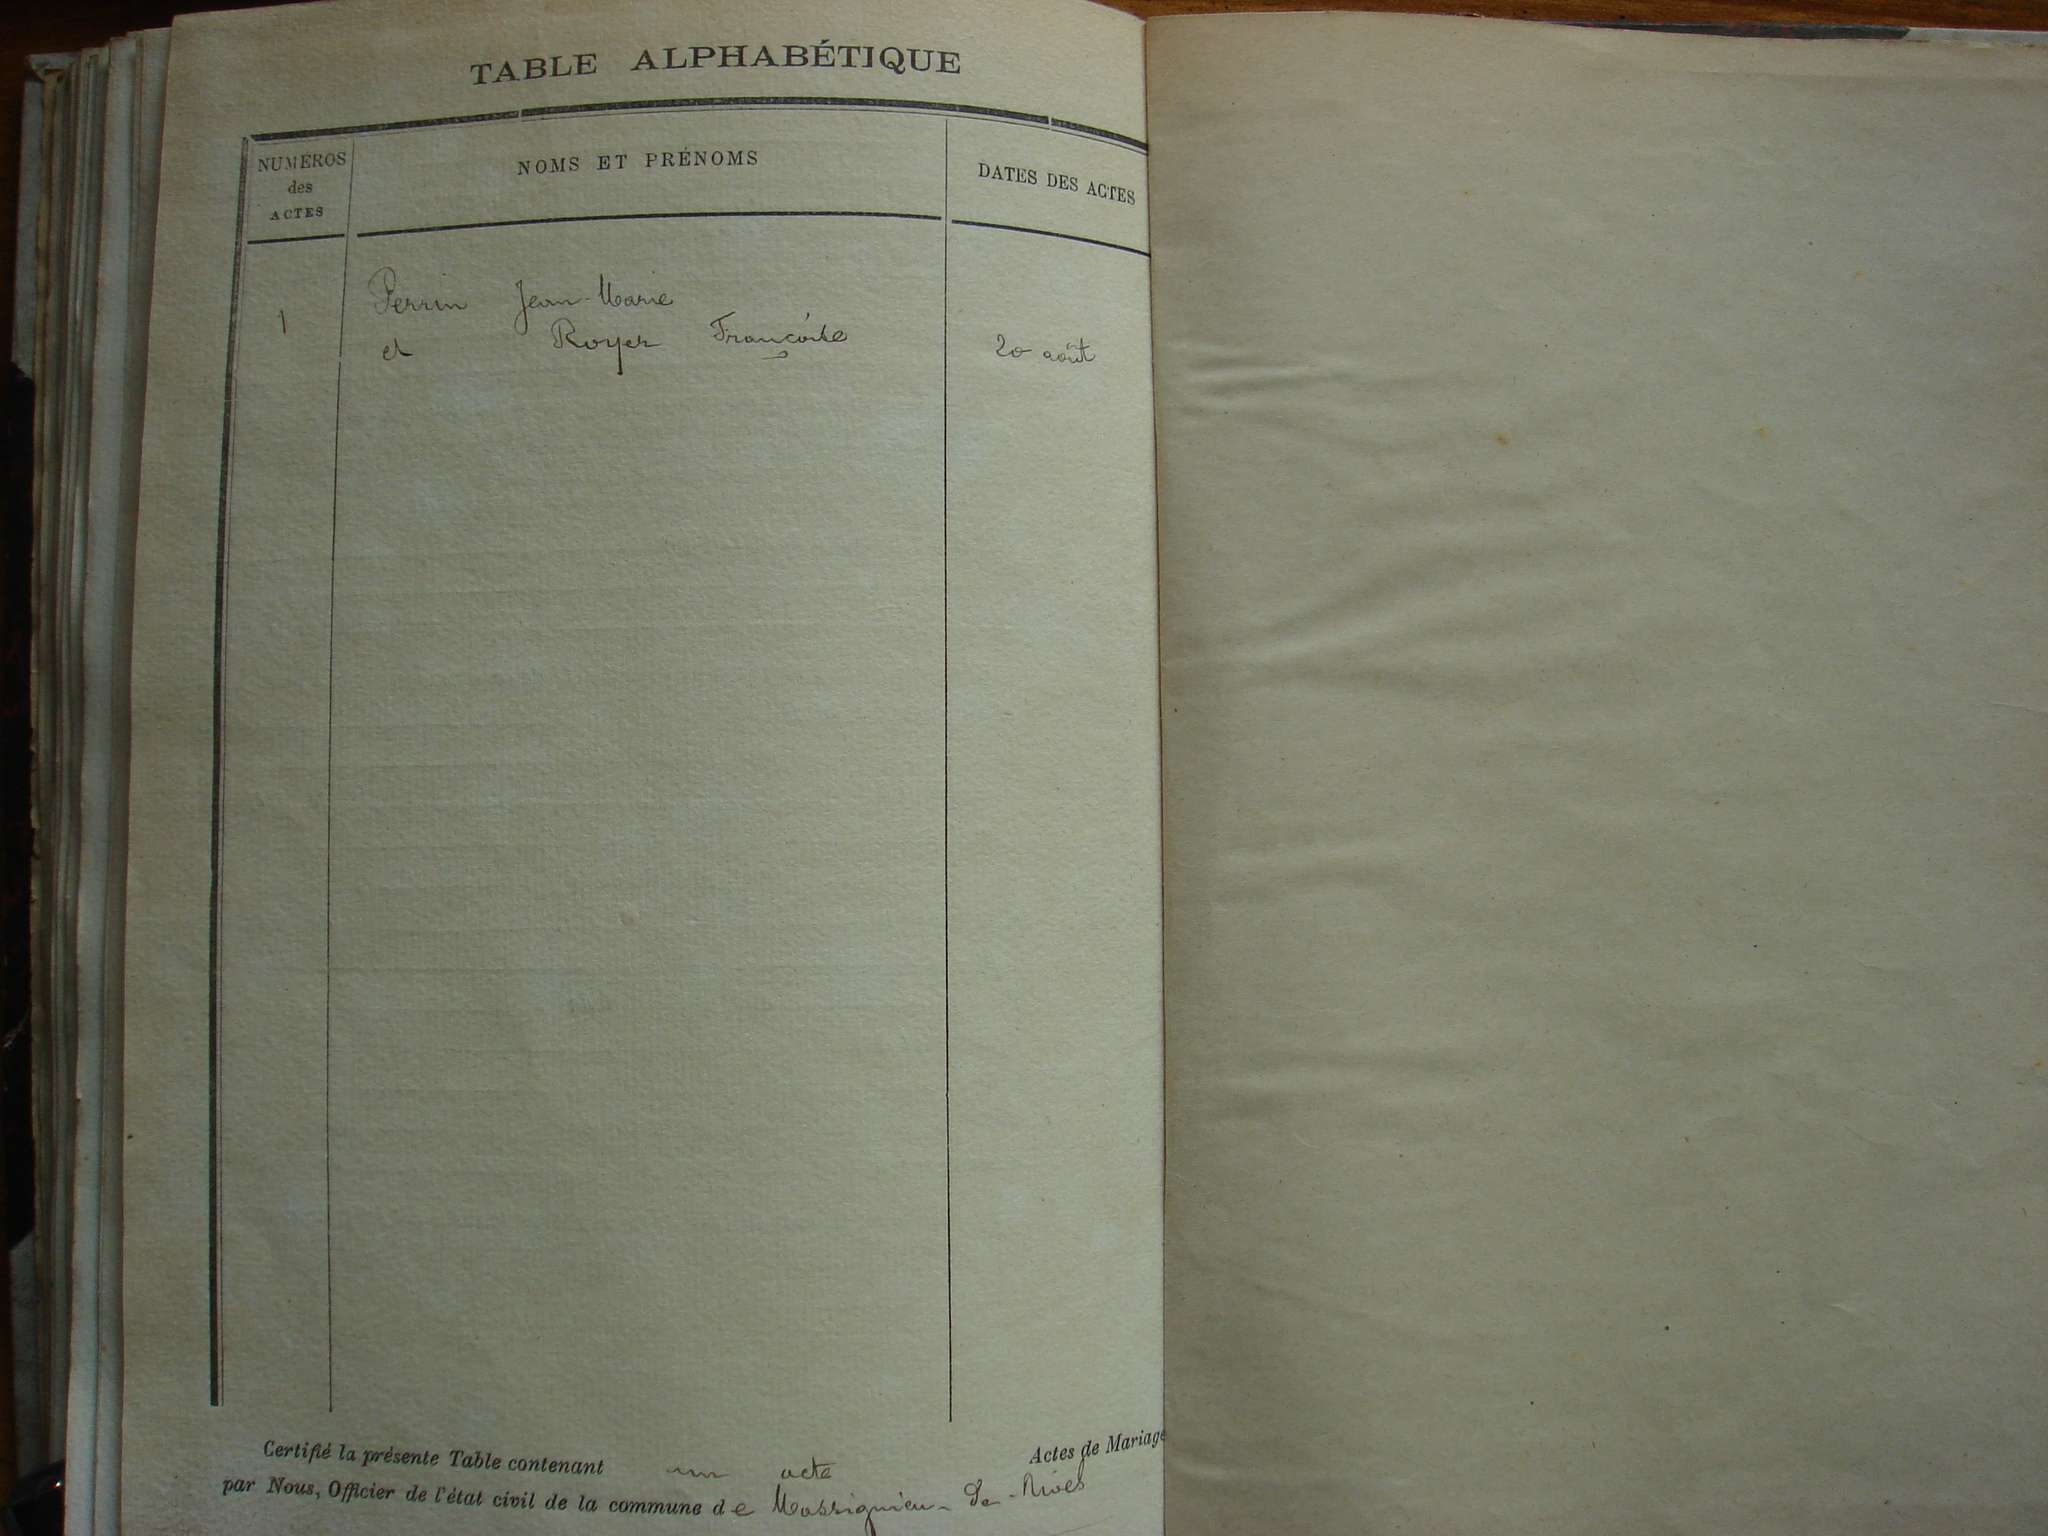 TABLE ALPHABÉTIQUE
NUMÉROS
des
ACTES
NOMS ET PRÉNOMS
DATES DES ACTES
Perrin Jean-Marie
1
et Royer Françoise
20 août
Certifié la présente Table contenant un acte Actes de Mariage
par Nous, Officier de l'état civil de la commune de Massignieu-de-Rives